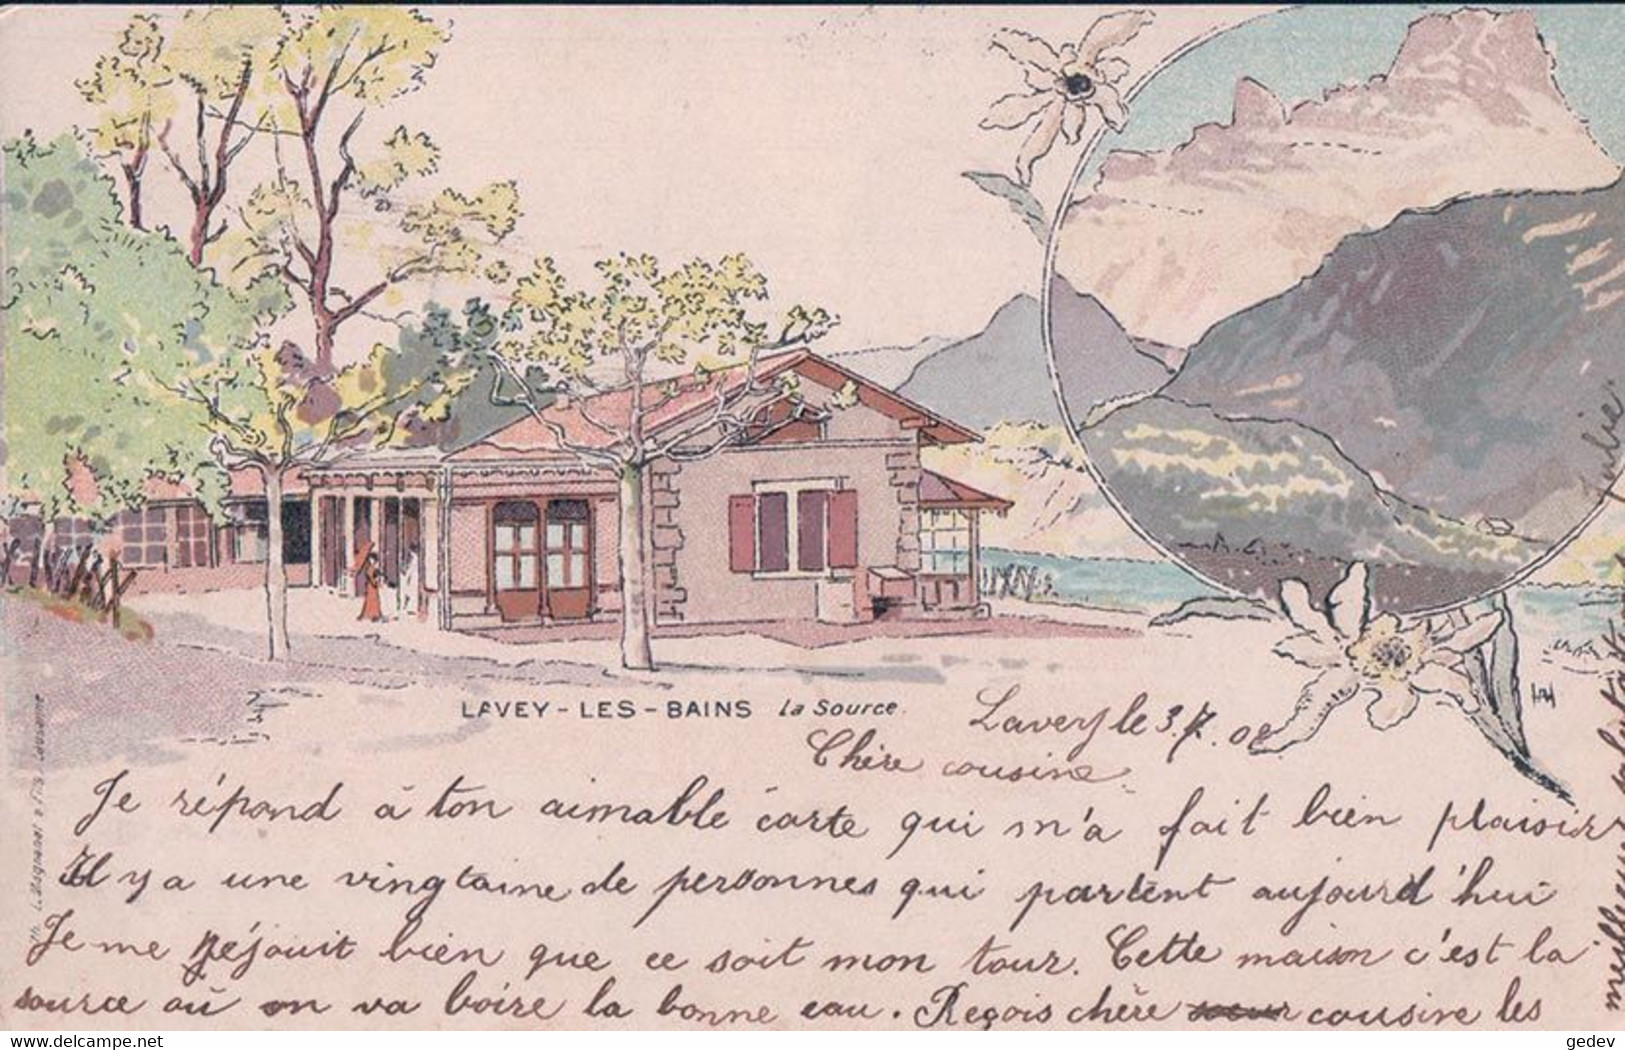 LAVEY-LES-BAINS La Source.
Lavey le 3.7.02
Chère cousine
Je répond à ton aimable carte qui m'a fait bien plaisir
Il y a une vingtaine de personnes qui partent aujourd'hui
Je me réjouit bien que ce soit mon tour. Cette maison c'est la
source où on va boire la bonne eau. Reçois chère soeur cousine les
meilleures salutations
Julie.
delcampe.net
gedev